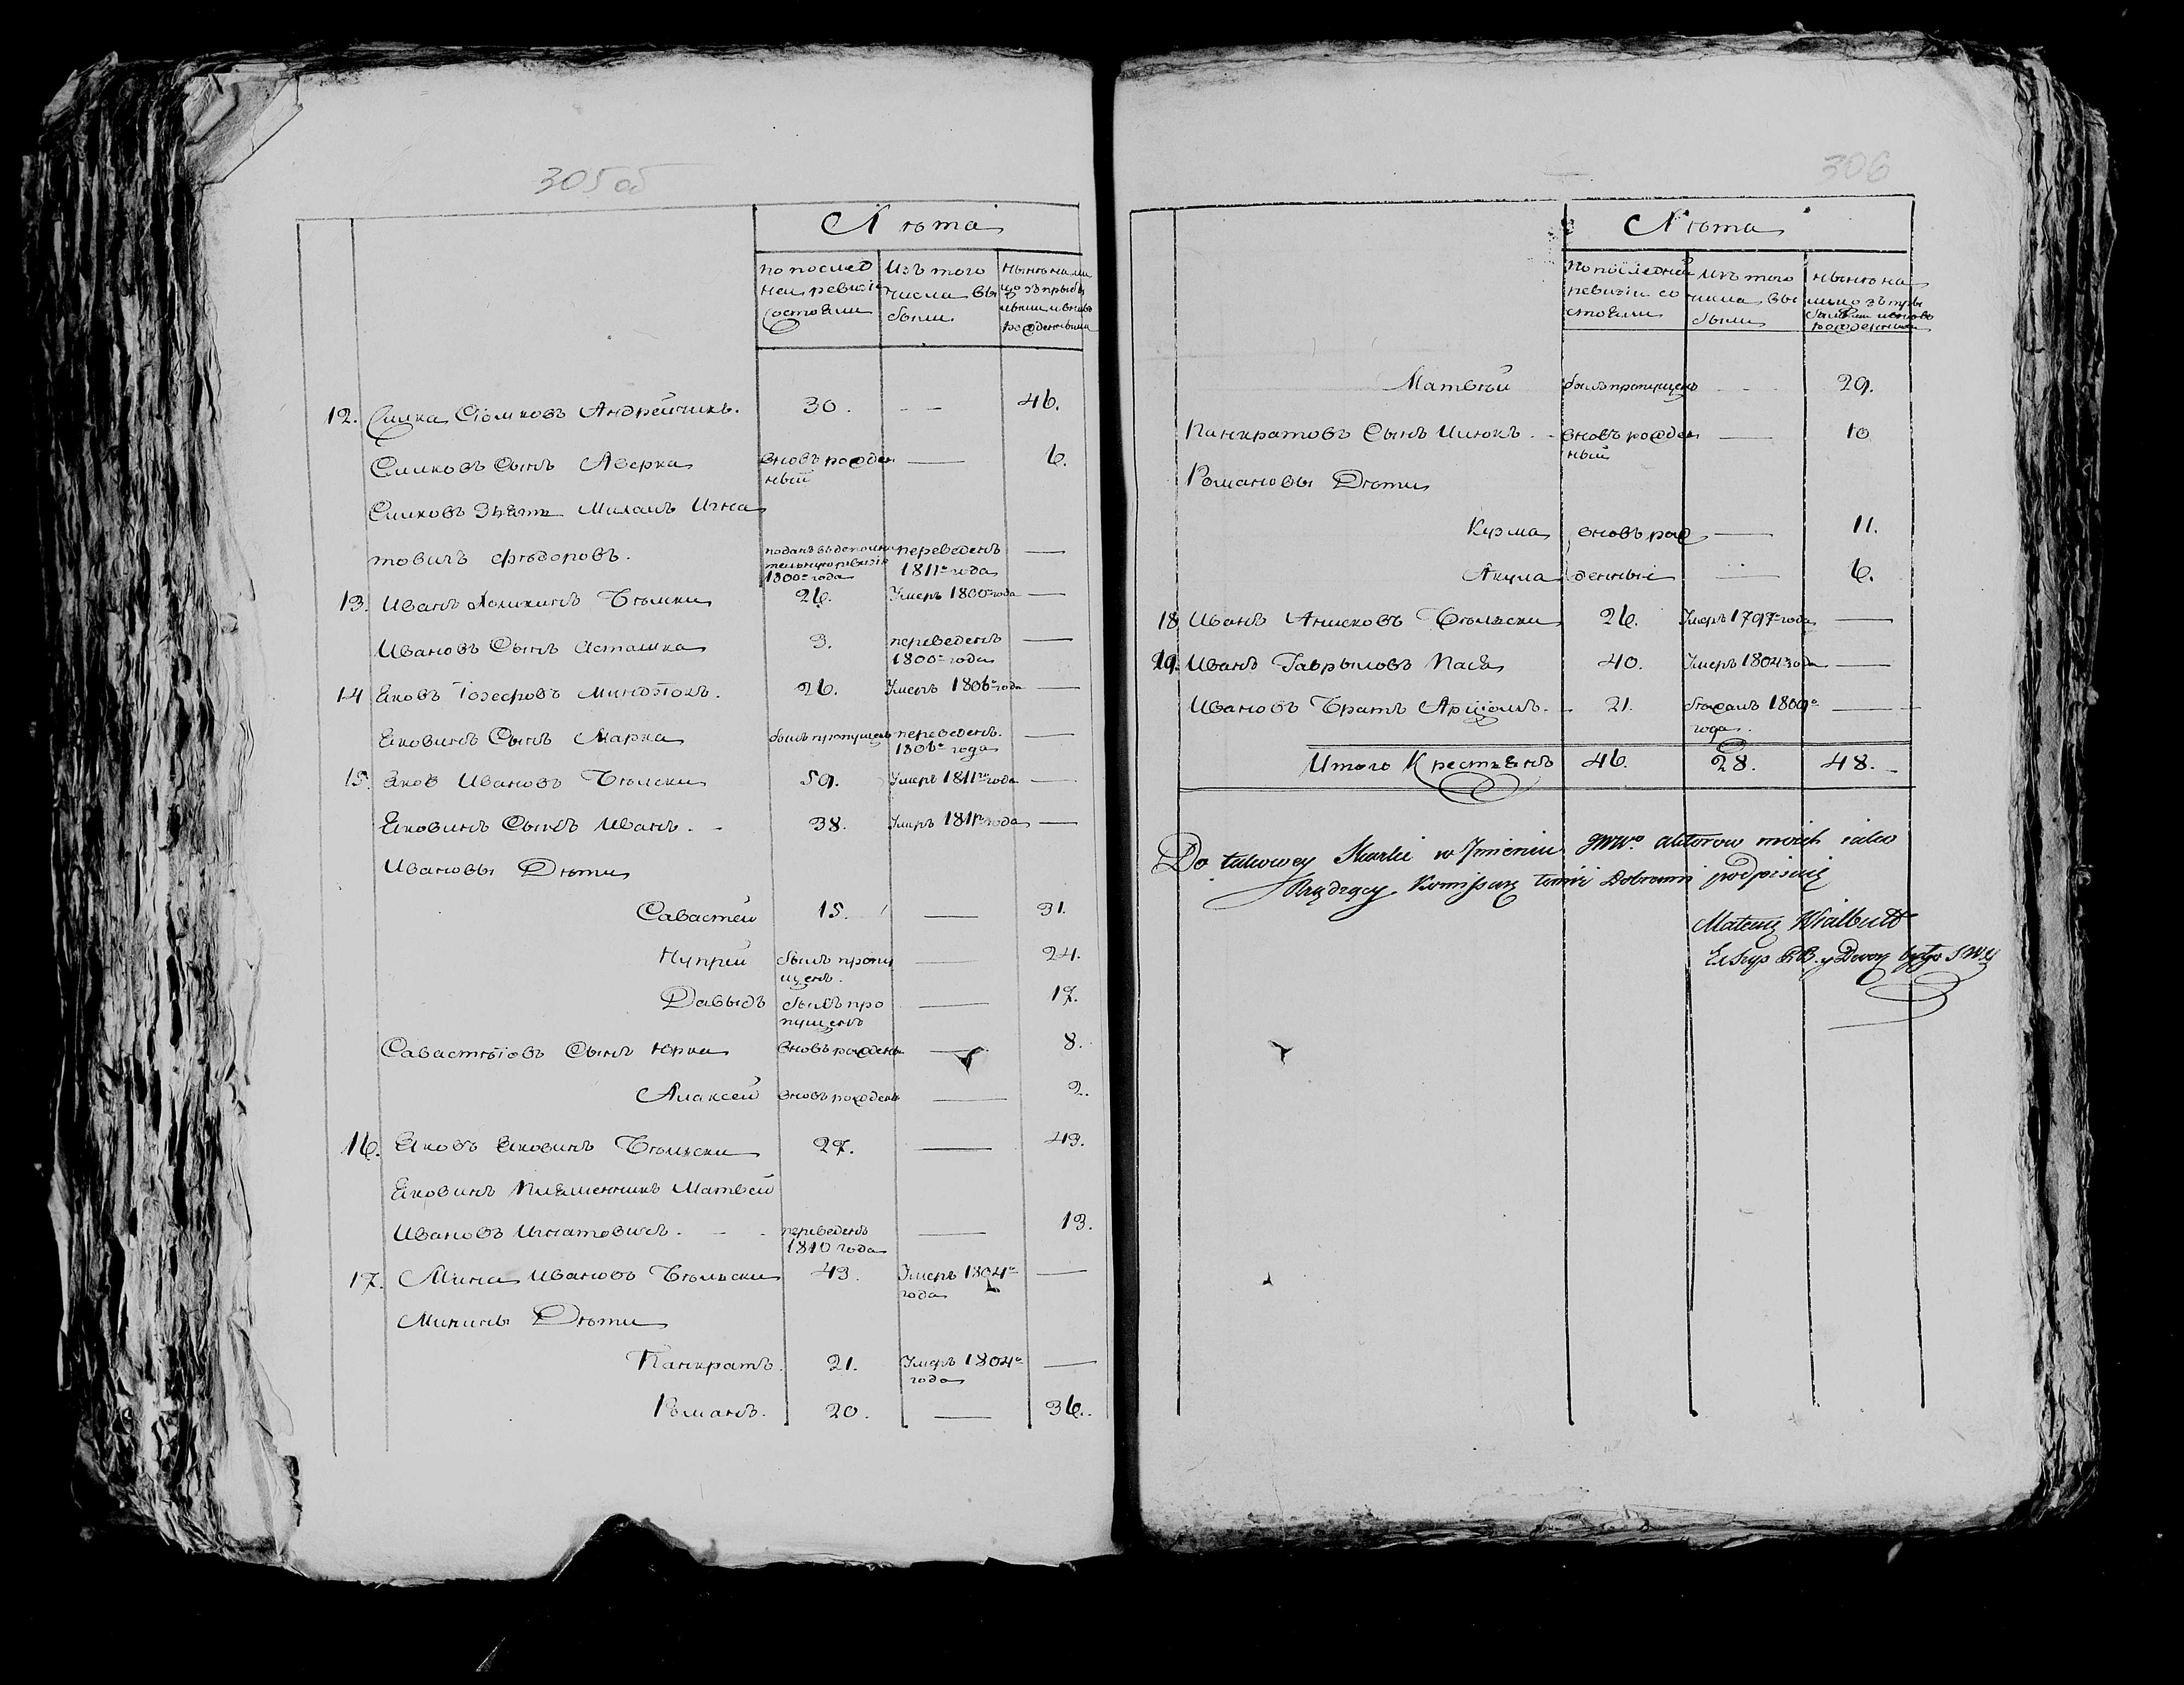 305 об
Лѣта
по послед
ней ревизіи
состояли
Изъ того
числа вы
были
нынѣ на ли
цо зъ прыбы
лыми и вновь
рожденными
12. Силка Сíомковъ Андрейчикъ. 30. — 46.
Силковъ Сынъ Аверка вновь рожден
ный — 6.
Силковъ Зять Милашъ Игна
товичъ Фѣдоровъ. поданъ въ дополни
тельную ревизію
1800го года переведенъ
1811го года —
13. Иванъ Бѣлики 26. Умеръ 1800 года —
Ивановъ Сынъ Асташка 3. переведенъ
1800го года —
14 Яковъ Іозефовъ 26. Умеръ 1806го года —
Яковинъ Сынъ Марка былъ пропущенъ переведенъ.
1806го года —
15. Яковъ Ивановъ Бѣлски 59. Умеръ 1811го года —
Яковинъ Сынъ Иванъ. 38. Умеръ 1811го года —
Ивановы Дѣти
Савастей 15. — 31.
Нупрей былъ пропу
щенъ. — 24.
Давыдъ былъ про
пущенъ — 17.
Савастѣíовъ Сынъ Юрка вновь рожденъ — 8.
Алаксей вновь рожденъ — 2.
16. Яковъ Яковинъ Бѣльски 27. — 43.
Яковинъ Племенникъ Матвей
Ивановъ Игнатовичъ. переведенъ
1810 года — 13.
17. Мина Ивановъ Бѣльски 43. Умеръ 1804го
года —
Минины Дѣти
Панкратъ. 21. Умеръ 1804го
года —
Романъ. 20. — 36.
306
Лѣта
по последней
ревизіи со
стояли
Изъ того
числа вы
были
нынѣ на
лицо зъ пры
былыми и вновь
рожденными
Матвѣй былъ пропущенъ — 29.
Панкратовъ Сынъ Илюкъ. вновь рожден
ный — 10
Романовы Дѣти
Кузма вновь рож — 11.
Акула денные — 6.
18 Иванъ Анисковъ Бѣльски 26. Умеръ 1797го года —
19. Иванъ Гаврыловъ 40. Умеръ 1804го года —
Ивановъ Братъ Арціомъ. 21. бѣжалъ 1809го
года. —
Итого Крестьянъ 46. 28. 48.
Do takowey Skazki w Jmieniu aktorow moich iako
Rządzący Komissarz temi Dobrami podpisuię
Mateusz Wialbutt